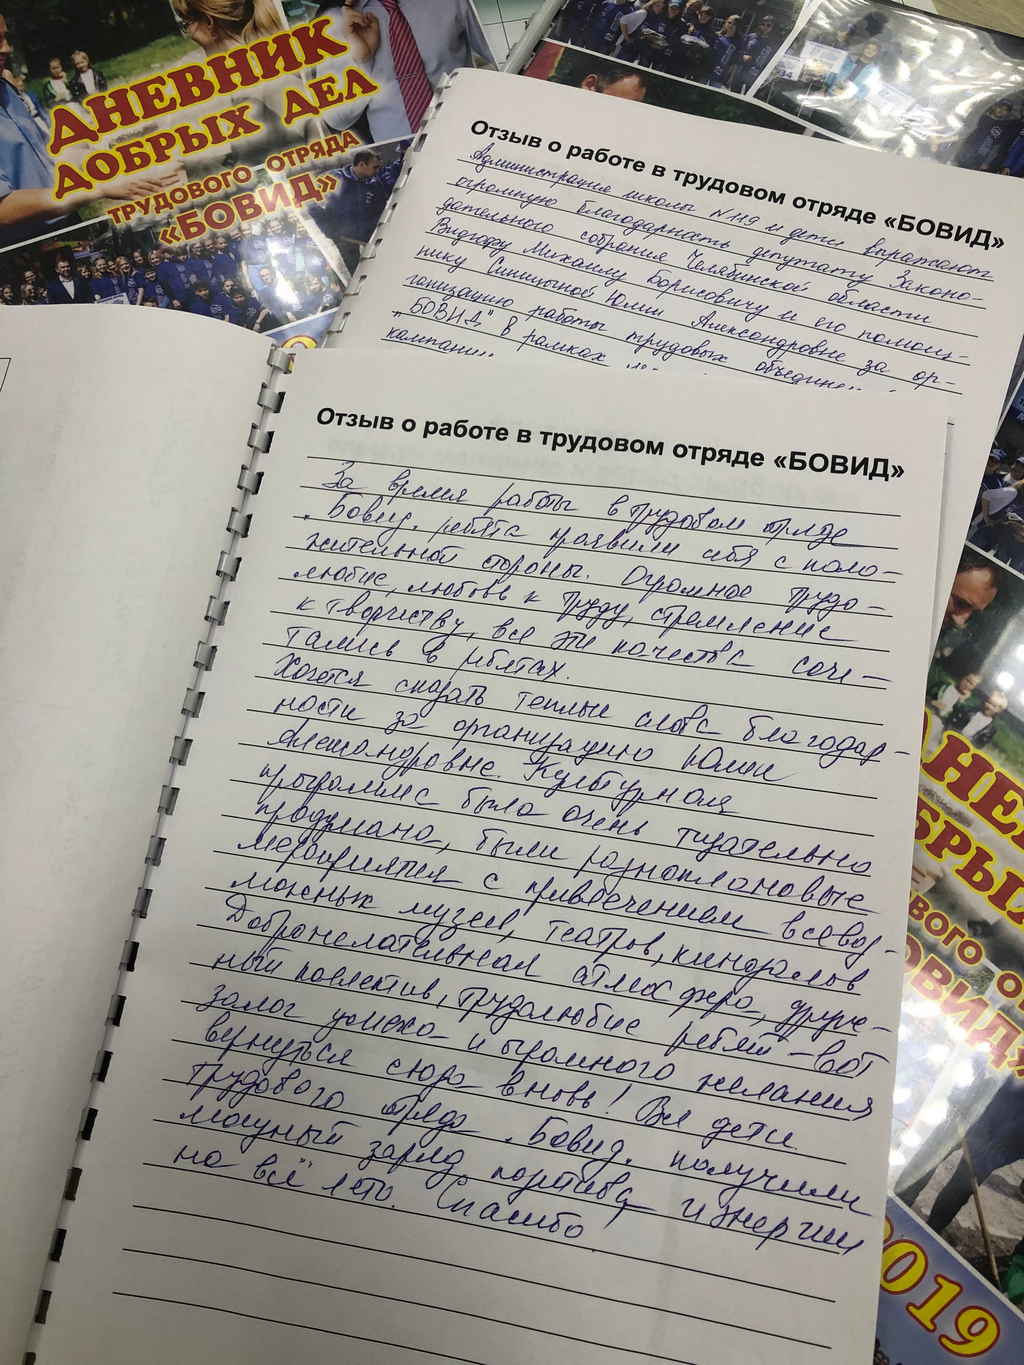 ДНЕВНИК
ДОБРЫХ ДЕЛ
ТРУДОВОГО ОТРЯДА
«БОВИД»
Отзыв о работе в трудовом отряде «БОВИД»
Администрация школы №119 и дети выражают
огромную благодарность депутату Законо-
дательного собрания Челябинской области
Видгофу Михаилу Борисовичу и его помощ-
нику Синицыной Юлии Александровне за ор-
ганизацию работы трудовых объедине
"БОВИД" в рамках
кампании
Отзыв о работе в трудовом отряде «БОВИД»
За время работы в трудовом отряде
"Бовид" ребята проявили себя с поло-
жительной стороны. Огромное трудо-
любие, любовь к труду, стремление
к творчеству, все эти качества соче-
тались в ребятах.
Хочется сказать теплые слова благодар-
ности за организацию Юлии
Александровне. Культурная
программа была очень тщательно
продумана, были разноплановые
мероприятия с привлечением всевоз-
можных музеев, театров, кинозалов
Доброжелательная атмосфера, друж-
ный коллектив, трудолюбие ребят - вот
залог успеха и огромного желания
вернуться сюда вновь! Все дети
трудового отряда "Бовид" получили
мощный заряд позитива и энергии
на всё лето. Спасибо!
ДНЕВ
ОБРЫХ
ОВОГО О
ОВИД»
2019